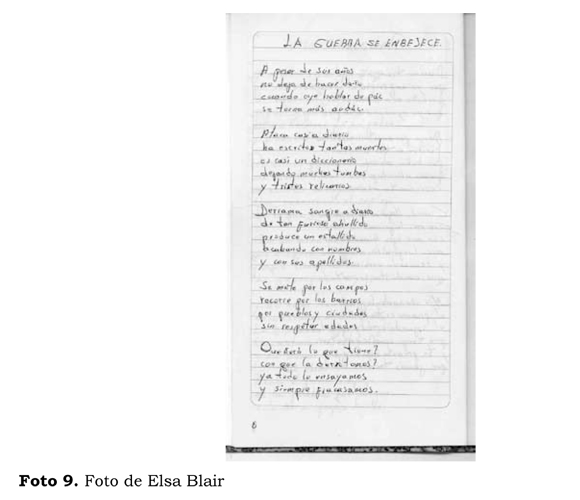 LA GUERRA SE ENBEJECE.
A pesar de sus años
no deja de hacer daño
cuando oye hablar de paz
se torna más audás.
casi a diario
ha escrito tantas muertes
es casi un diccionario
dejando muchas tumbas
y tristes relicarios
Derrama sangre a diario
da tan furioso ahullido
produce un estallido
acabando con nombres
y con sus apellidos.
Se mete por los campos
recorre por los barrios
por pueblos y ciudades
sin respetar edades
Que será lo que tiene?
con que la
ya todo lo ensayamos
y siempre fracasamos.
6
Foto 9. Foto de Elsa Blair